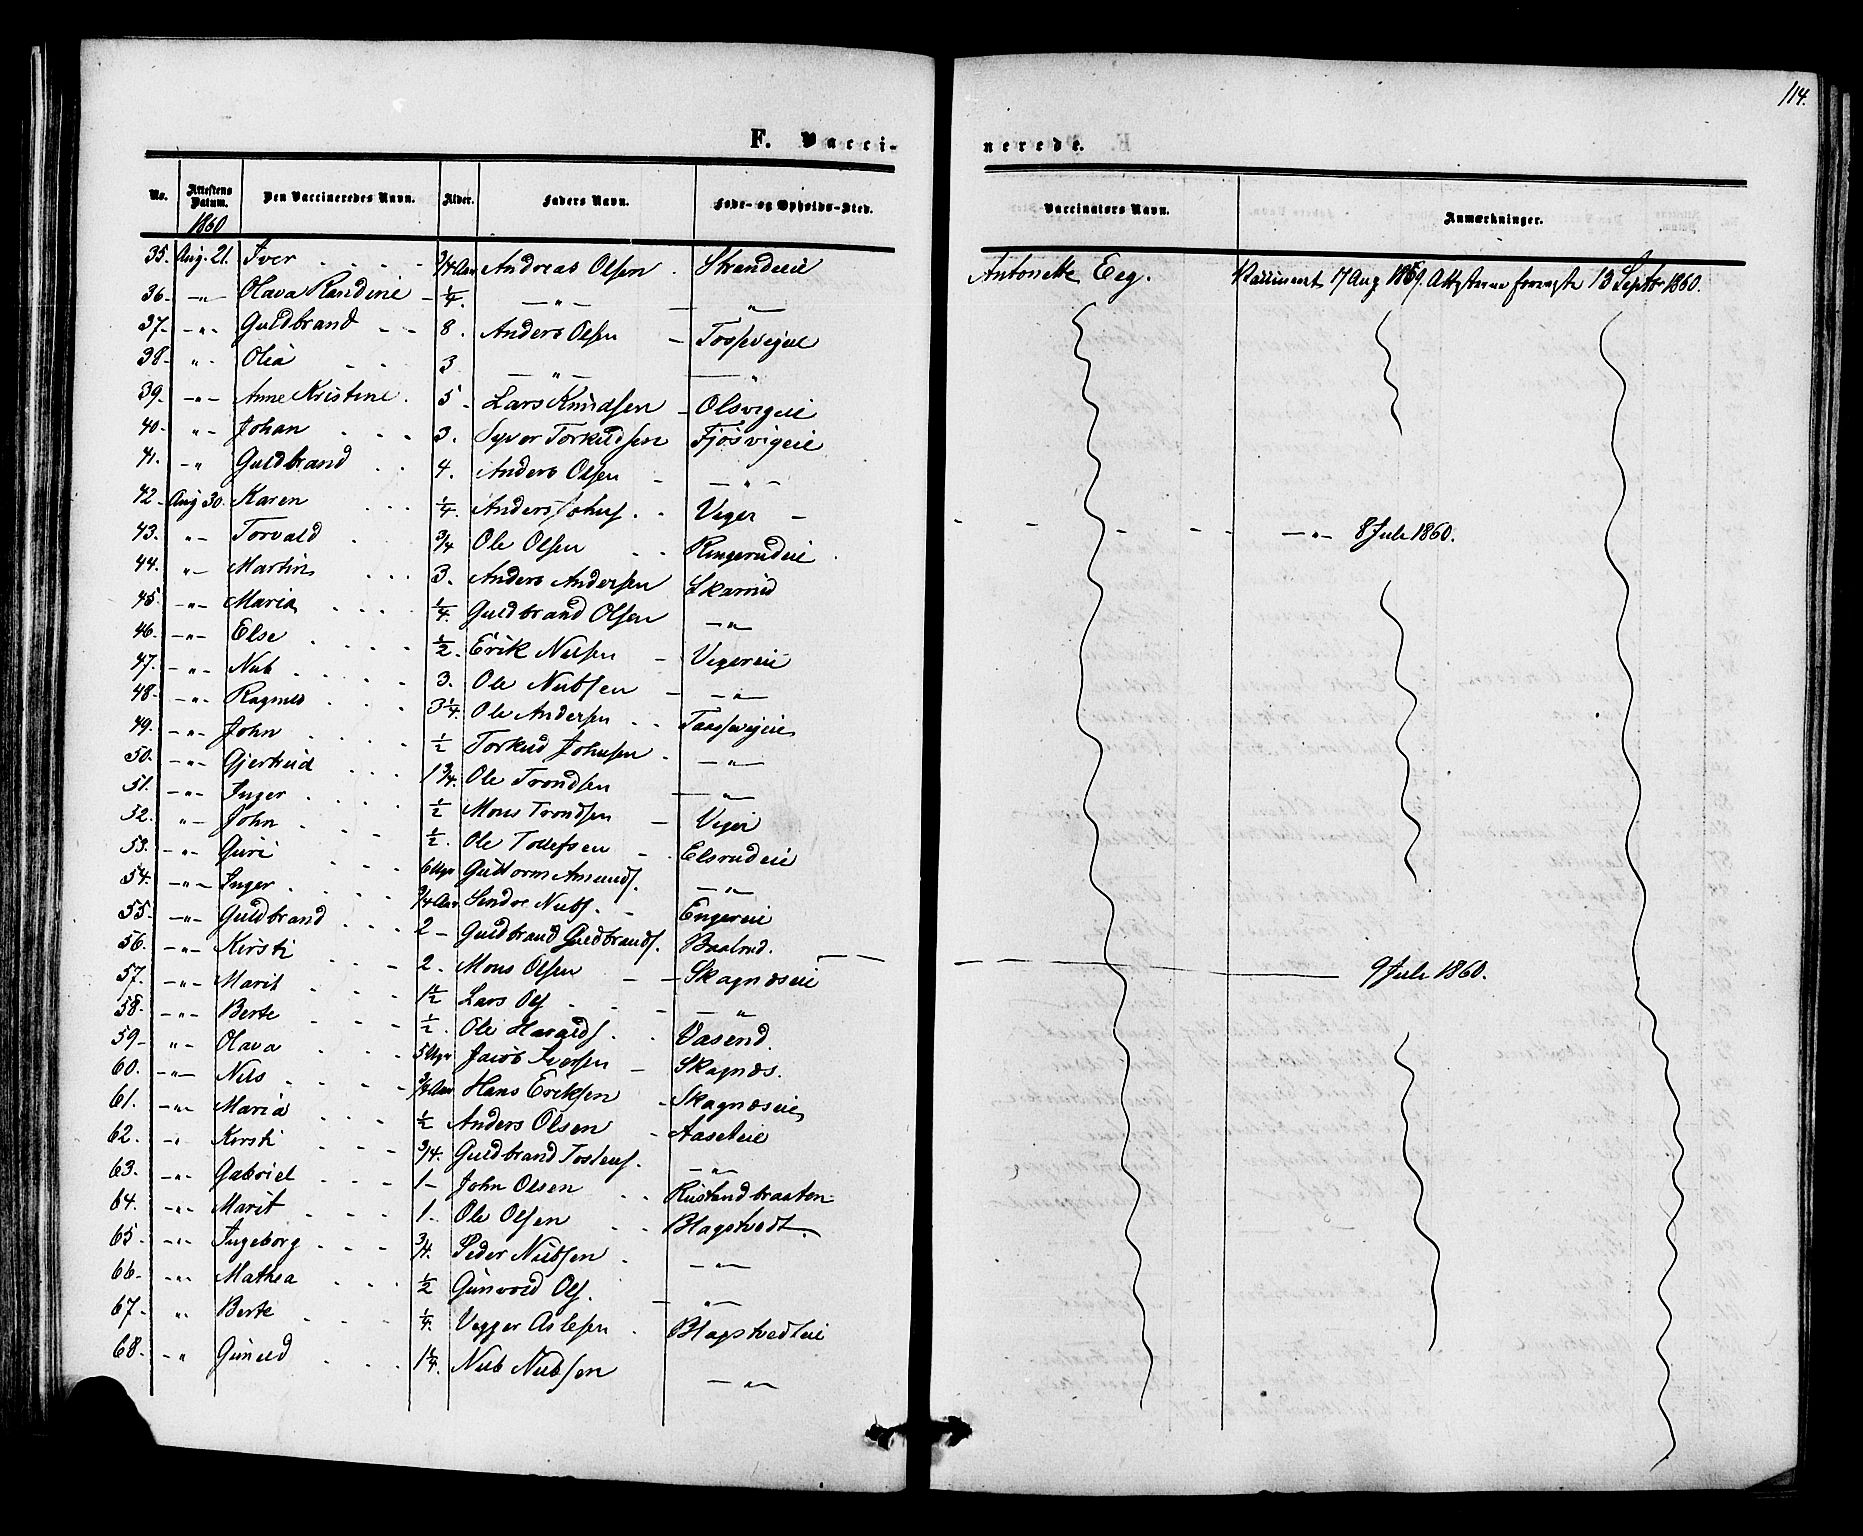 114.
F. Vacci-nerede.
No. Attestens Datum. Den Vaccineredes Navn. Alder. Faders Navn. Føde- og Opholds-Sted. Vaccinators Navn. Anmærkninger.
1860
35. Aug. 21. Iver 3/4 Aar Andreas Olsen Strandeie Antonette Eeg. Vaccineert 17 Aug 1859. 13 Septbr 1860.
36. -„- Olava Randine 1/4. -„- -„-
37. -„- Guldbrand 8. Anders Olsen Tossevigeie
38. „ Olia 3 -„- -„-
39. -„- Anne Kristine. 5 Lars Knudsen Olsvigeie
40. „ Johan 3. Syver Torkildsen Fjösvigeie
41. -„ Guldbrand 4. Anders Olsen -„-
42. Aug 30. Karen 1/4. Anders Johns. Veger - -„- 8 Juli 1860.
43. „ Torvald 3/4 Ole Olsen Ringerudeie
44. „ Martin 3. Anders Andersen Skarrud
45. -„- Maria 1/4 Guldbrand Olsen -„-
46. -„- Else 1/2. Erik Nilsen Vegereie
47. -„- Nils 3. Ole Nielsen -„-
48. -„- Ragnild 3 1/4. Ole Andersen Taassevigeie
49. -„- John 1/2 Torkild Johnsen -„-
50. -„- Gjertrud 1 3/4. Ole Trondsen -„-
51. -„- Inger 1/2 Mons Trondsen Veger
52. „ John 1/2. Ole Tollefsen Elsrudeie
53. -„- Guri 6 Uger Guttorm Amunds. -„-
54. -„- Inger 3/4 Aar Sindre Niels. Engereie
55. -„- Guldbrand 2 Guldbrand Guldbrands. Baalrud.
56. -„- Kirsti 2. Mons Olsen Skagnæseie 9 Juli 1860.
57. -„- Marit 1 1/2 Lars Ols -„-
58. -„- Berte 1/2. Ole Haralds. Vasend.
59 „ Olava 5 Uger Jacob Iversen Skagnæs.
60. -„- Nils 3/4 Aar Hans Eriksen Skagnæseie
61. -„- Maria 1/2 Anders Olsen Aaseteie
62. „ Kirsti 3/4. Guldbrand Tostens. -„-
63. -„- Gabriel 1 John Olsen Rustandbraaten
64. -„- Marit 1. Ole Olsen Blagstvedt.
65. -„- Ingeborg 3/4. Peder Nielsen -„-
66. -„- Mathea 1/2 Gunvold Ols. -„-
67. „ Berte 1/4. Vegger Aslesen Blagstvedteie
68. „ Gunild 1 1/4. Nils Nielsen -„-